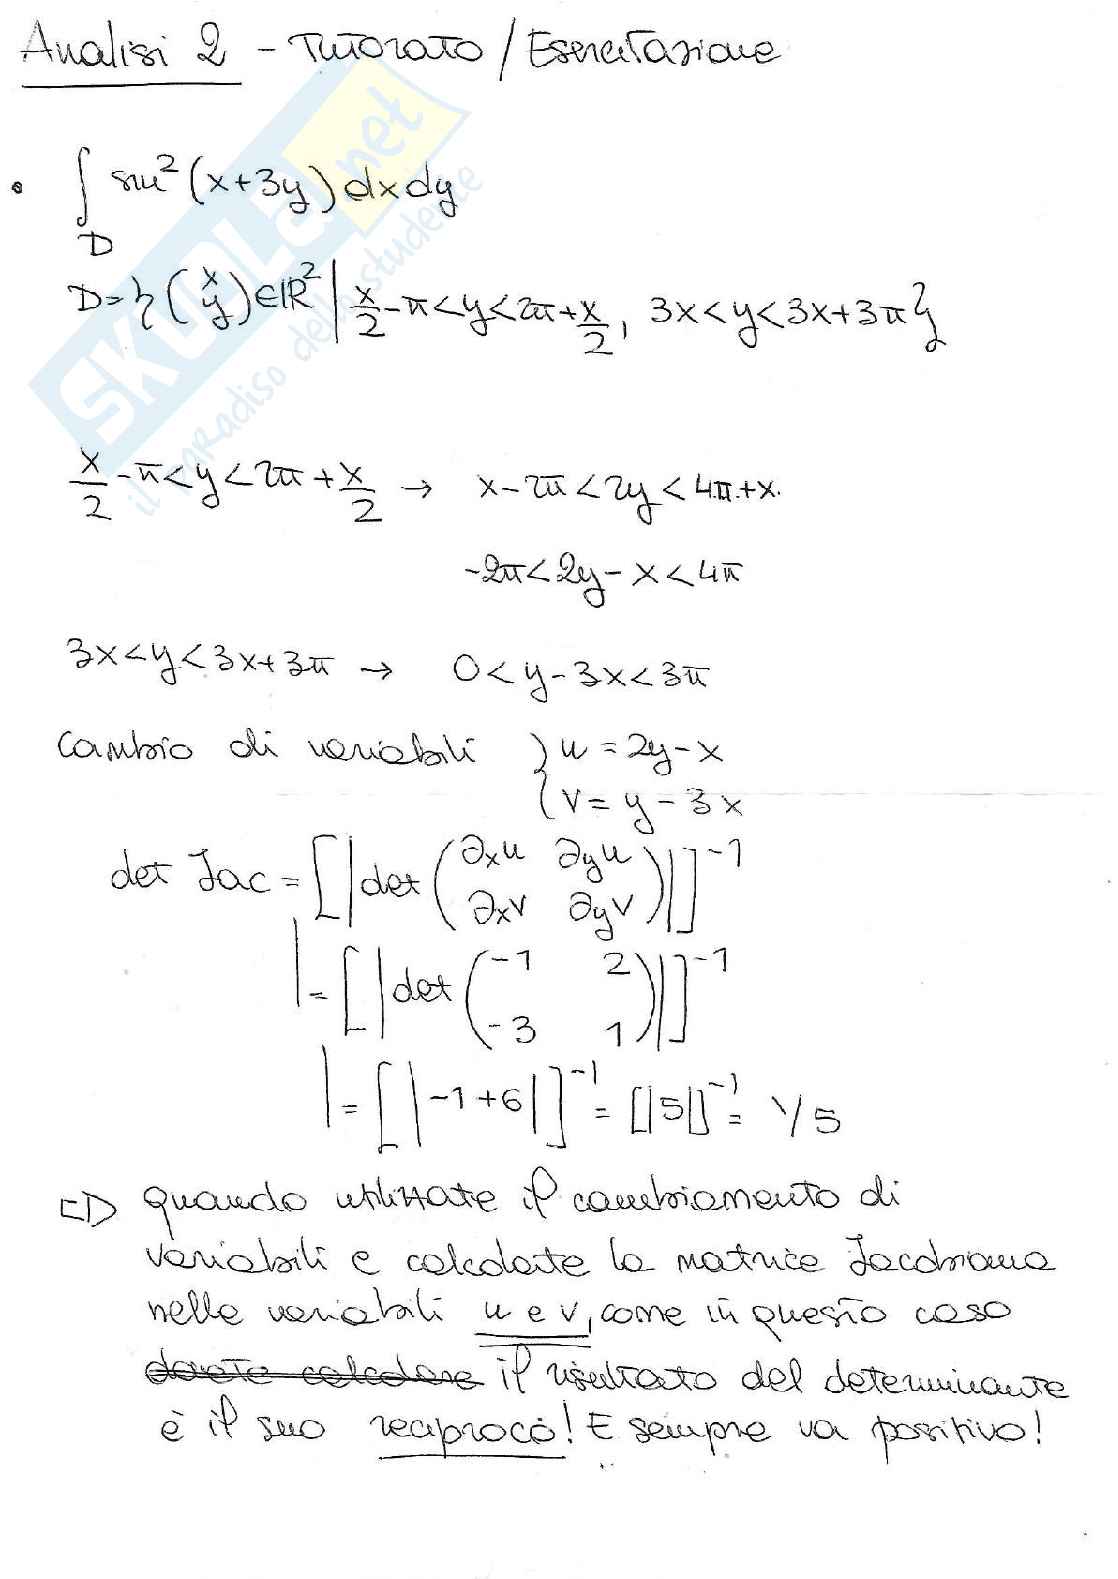 Analisi 2 - Tutorato / Esercitazione
• ∫_D sin²(x+3y) dxdy
D = { (x y) ∈ ℝ² | x/2 - π < y < 2π + x/2, 3x < y < 3x + 3π }
x/2 - π < y < 2π + x/2 → x - 2π < 2y < 4π + x
-2π < 2y - x < 4π
3x < y < 3x + 3π → 0 < y - 3x < 3π
Cambio di variabili { u = 2y - x
{ v = y - 3x
det Jac = [ | det ( ∂xu ∂yu
∂xv ∂yv ) | ]⁻¹
= [ | det ( -1 2
-3 1 ) | ]⁻¹
= [ | -1 + 6 | ]⁻¹ = [ |5| ]⁻¹ = 1/5
⇨ quando utilizzate il cambiamento di
variabili e calcolate la matrice Jacobiana
nelle variabili u e v, come in questo caso
dovete calcolare il risultato del determinante
è il suo reciproco! E sempre va positivo!
SKUOLA.net
il paradiso dello studente